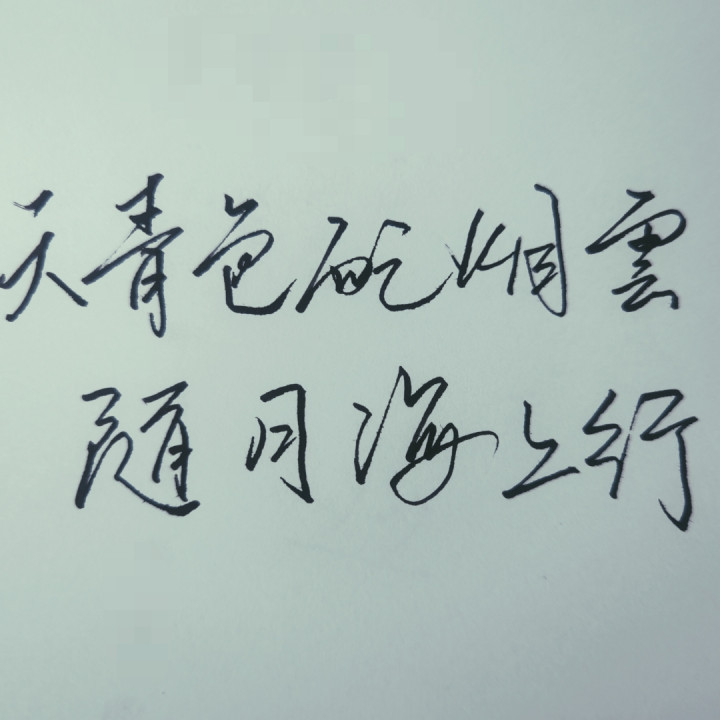 天青色烟雲
随月海上行